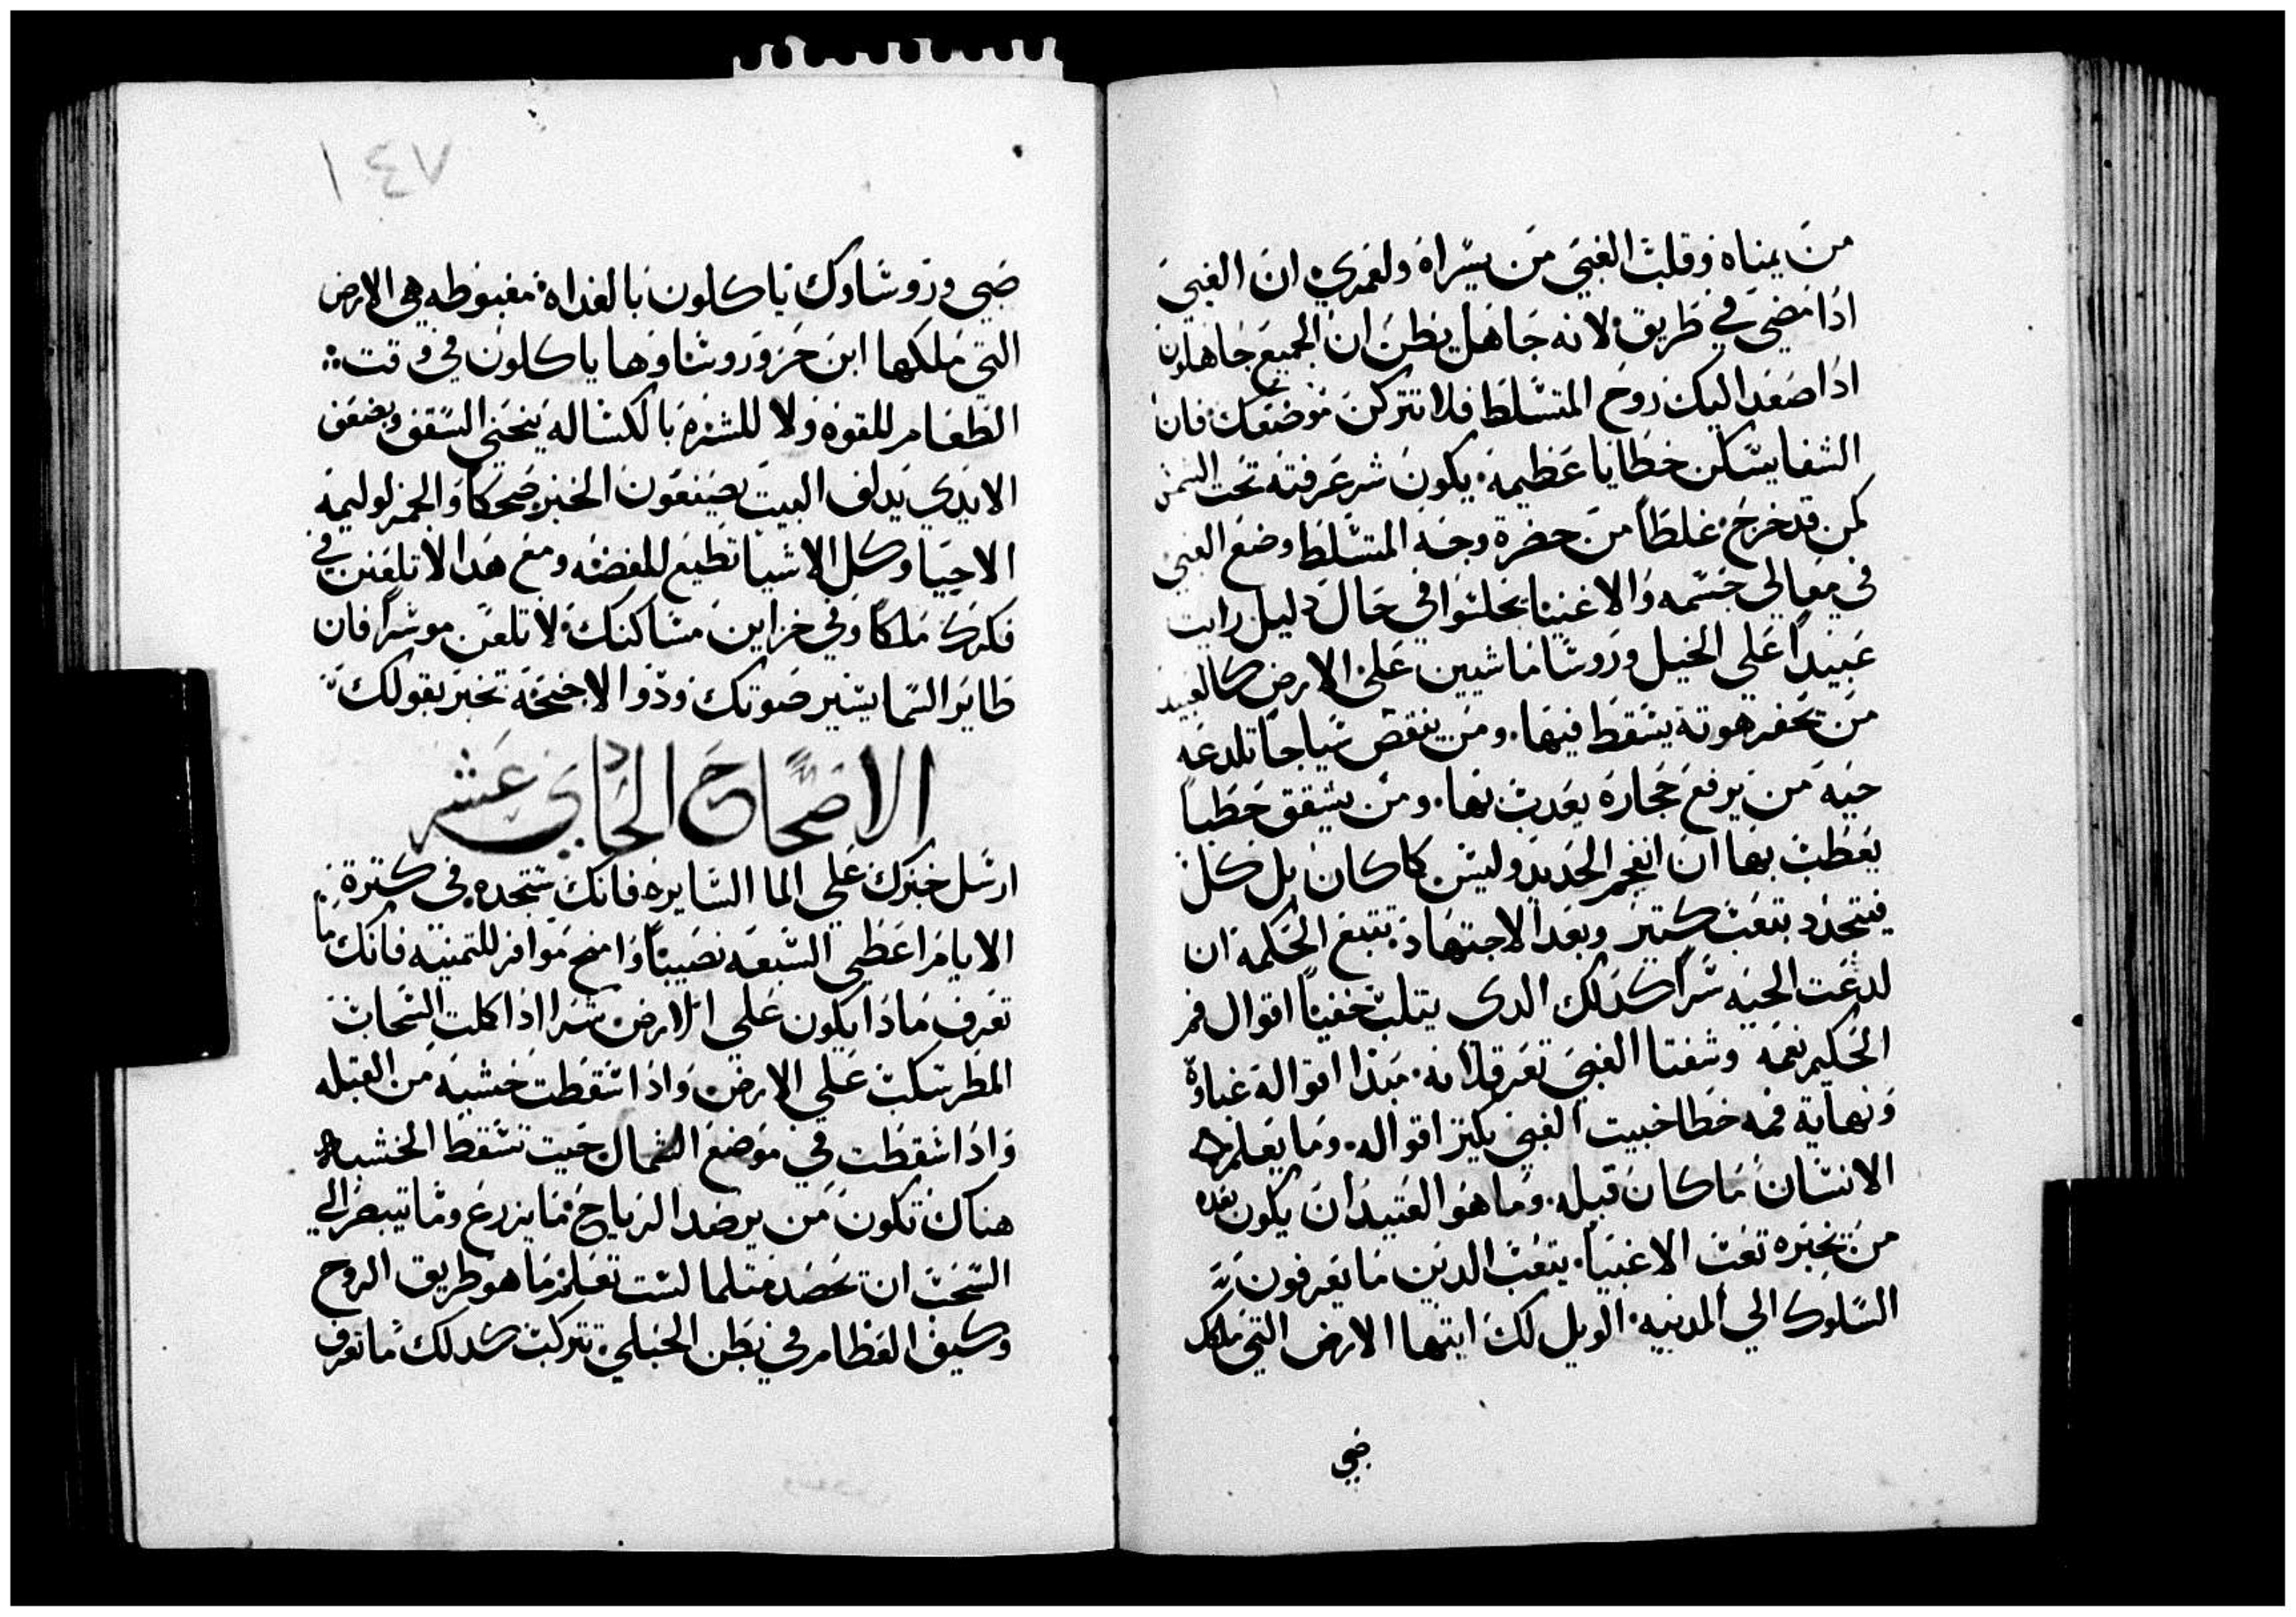 من يمناه وقلب الغبي من يسراه ولعمري ان الغبي
ادا مضي في طريق لانه جاهل يظن ان الجميع جاهلون
ادا صعد اليك روح المتسلط فلا تتركن موضعك فان
الشفا يسكن خطايا عظيمه يكون شر عرفته تحت الشمس
كمن قد خرج غلطاً من حضرة وجه المتسلط وضع الغبي
في معالي جسمه والاغنيا يجلسوا في حال دليل رايت
عبيداً علي الخيل وروسا ماشيين علي الارض كالعبيد
من يحفر هوته يسقط فيها ومن ينقض سياجاً تلدعه
حيه من يرفع حجاره يعدب بها ومن يشقق حطباً
يعطب بها ان انفجر الحديد وليس كما كان بل كل
فيتجدد بتعب كتير وبعد الاجتهاد تتبع الحكمه ان
لدغت الحيه سراً كدلك الدى يتلب خفياً اقوال فم
الحكيم نعمه وشفتا الغبي تعرقلانه مبدا اقواله غباوة
ونهاية فمه خطا خبيت الغبي يكتر اقواله وما يعلم
الانسان ما كان قبله وما هو العتيد ان يكون بعده
من يخبره تعب الاغبيا يتعب الدين ما يعرفون
السلوك الي المدينه الويل لك ايتها الارض التي ملكك
صبي
١٤٧
صبي وروساوك ياكلون بالغداه مغبوطه هي الارض
التي ملكها ابن حر وروساوها ياكلون في وقت
الطعام للقوه ولا للشره بالكساله ينحني السقف وبضعف
الايدي يدلف البيت يصنعون الخبز ضحكا والخمر لوليمة
الاحيا وكل الاشيا تطيع للفضه ومع هدا لا تلعنن في
فكرك ملكاً وفي خزاين مساكنك لا تلعن موسراً فان
طاير السما يسير صوتك ودو الاجنحه تخبر بقولك
الاصحاح الحادي عشر
ارسل خبزك علي الما السايره فانك ستجده في كترة
الايام اعطي السبعه نصيباً وامنح موافر للتمنيه فانك ما
تعرف مادا يكون علي الارض شرا ادا اكلت السحاب
المطر سكبت علي الارض وادا سقطت خشبه من القبله
وادا سقطت في موضع الشمال حيت تسقط الخشبه
هناك تكون من يرصد الرياح فما يزرع وما تيبصر الي
السحب ان تحصد متلما لست تعلم ما هو طريق الروح
وكيف العظام في بطن الحبلي تتركب كدلك ما تعرف